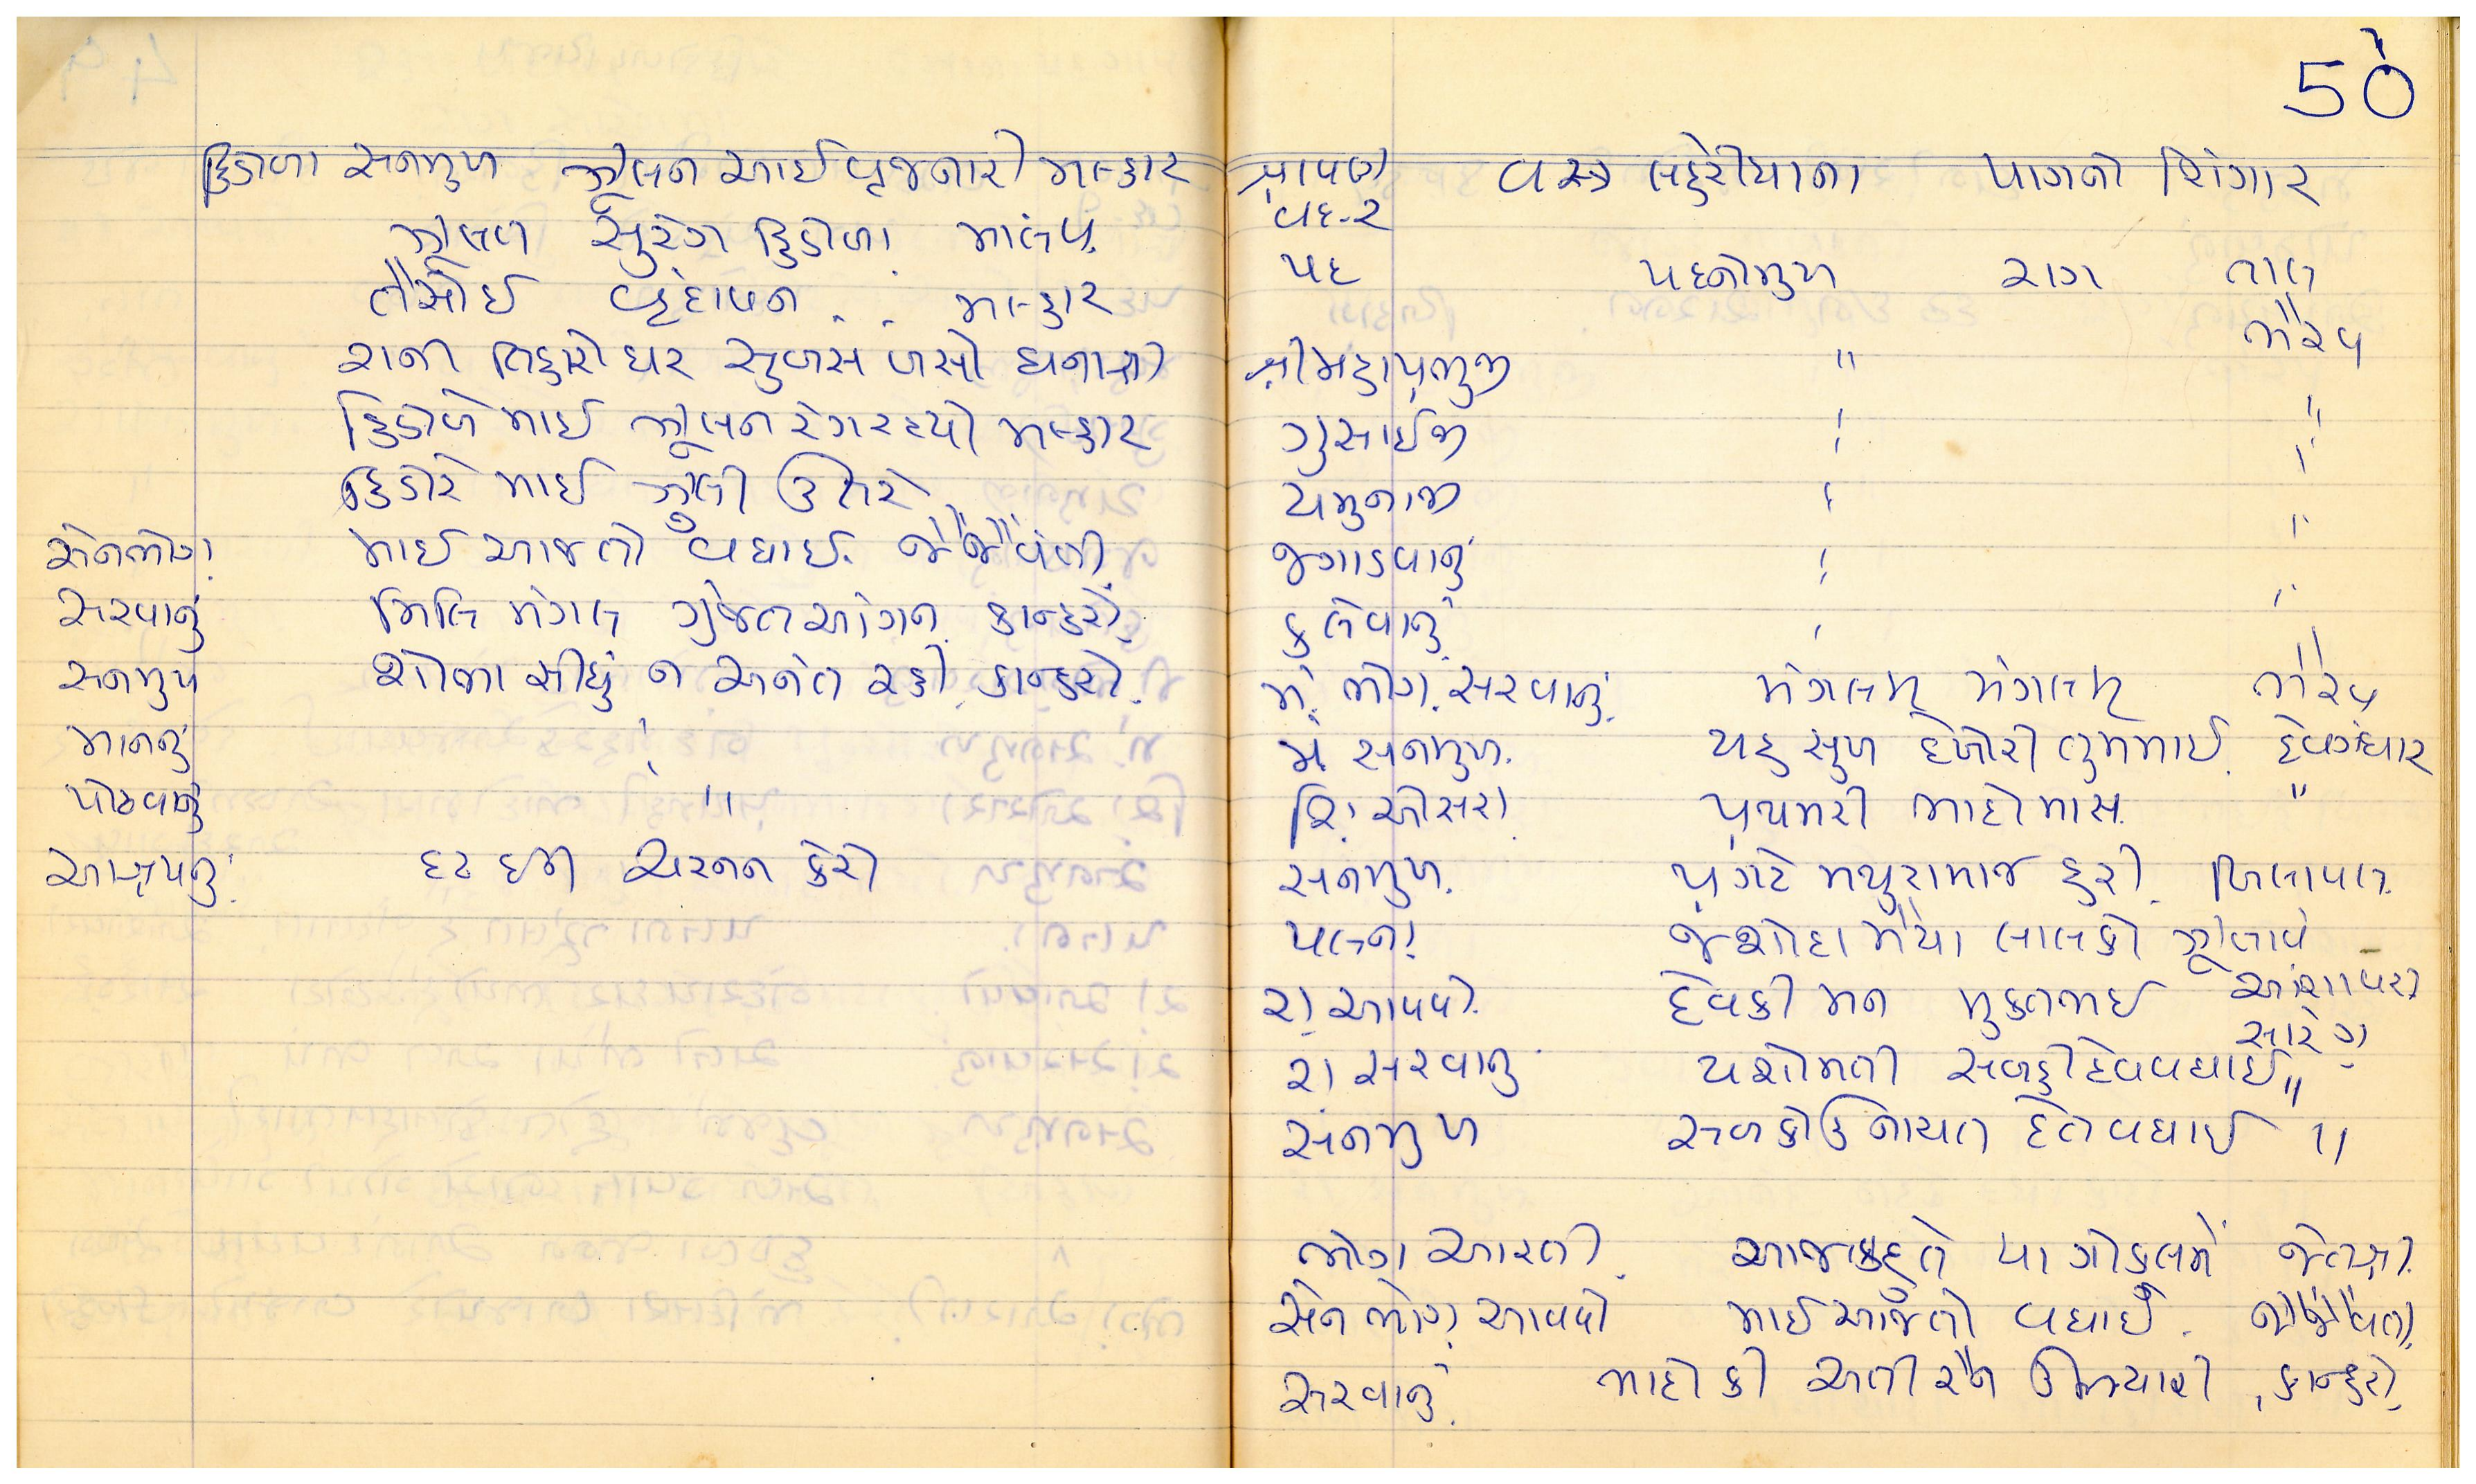 હિંડોળા સનમુખ ઝુલન આઈ વૃજનારી મલ્હાર
ઝુલત સુરંગ હિંડોળા માલવ
તૈસોઈ વૃંદાવન .. મલ્હાર
રાની તિહારો ઘર સુબસ બસો ધનાશ્રી
હિંડોળે માઈ ઝુલન રંગરહ્યો મલ્હાર
હિંડોરે માઈ ઝુલી ઉતરે
સેનભોગ માઈ આજતો વધાઈ જૈજૈવંતી
સરવાનું મિલિ મંગલ ગુંજત આંગન કાન્હરો
સનમુખ શોભા સીંધુ ન અનંત રહી કાન્હરો
માનનું "
પોઢવાનું "
આશ્રયનું દ્રઢ ઈન ચરનન કેરો
50
શ્રાવણ વસ્ત્ર લહેરીયાના પાગનો શિંગાર
વદ-૨
પદ પદનોમુખ રાગ તાલ
શ્રીમહાપ્રભુજી " ભૈરવ
ગુસાઈજી " "
યમુનાજી " "
જગાડવાનું " "
કલેવાનું " "
મં. ભોગ સરવાનું મંગલમ્ મંગલમ્ ભૈરવ
મં સનમુખ યહ સુખ દેખોરી તુમમાઈ દેવગંધાર
શિં ઓસરા પ્રથમરી ભાદોમાસ "
સનમુખ પ્રગટે મથુરામાજ હરી બિલાવલ
પલના જશોદા મૈયા લાલકો ઝુલાવે
રા આવવો દેવકી મન મુકતભઈ આશાવરી
સારંગ
રા સરવાનું યશોમતી સબહીદેવવધાઈ "
સનમુખ સબકોઉનાચત દેતવધાઈ "
ભોગ આરતી આજકહતે યા ગોકુલમેં જેતશ્રી
સેન ભોગ આવવો માઈઆજતો વધાઈ જૈજૈવંતી
સરવાનું ભાદો કી અતી રૈન ઉજીયારી કાન્હરો